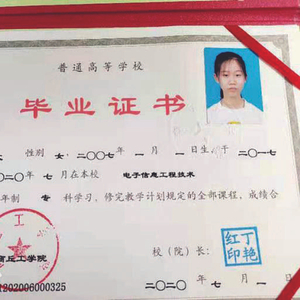 普通高等学校
毕业证书
性别 女,二〇〇七年一月一日生,于二〇一七
二〇年七月在本校 电子信息工程技术
年制 专科学习、修完教学计划规定的全部课程,成绩合
校(院)长:
丁艳红印
商丘工学院
二〇二〇年七月一
1202006000325